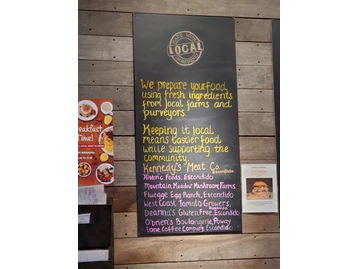 LOCAL
We prepare your food
using fresh ingredients
from local farms and
purveyors.
Keeping it local
means tastier food
while supporting the
community.
Kennedy's Meat Co. Escondido
Foods, Escondido
Mountain Meadow Mushroom Farms
Fluegge Egg Ranch, Escondido
West Coast Tomato Growers,
Deanna's Gluten Free, Escondido
O'brien's Boulangerie, Poway
Zone Coffee Company, Escondido
Breakfast
Time!